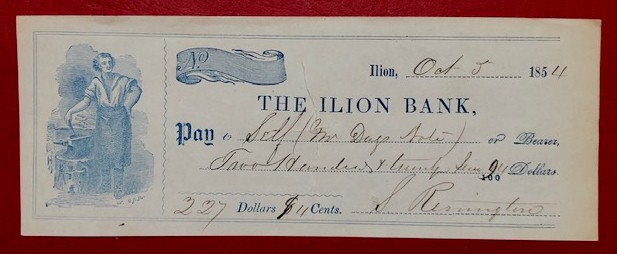 No.
Ilion, Oct 5 1854
THE ILION BANK,
Pay to Self (Mr Days Note) or Bearer,
Two Hundred & twenty Seven 94/100 Dollars.
227 Dollars 94 Cents. S Remington